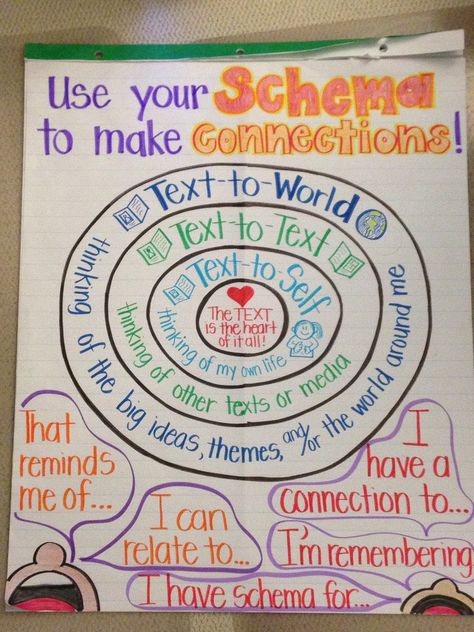 Use your Schema
to make connections!
Text-to-World
thinking of the big ideas, themes, and/or the world around me
Text-to-Text
thinking of other texts or media
Text-to-Self
thinking of my own life
The TEXT
is the heart
of it all!
That
reminds
me of...
I can
relate to...
I
have a
connection to...
I'm remembering
I have schema for...